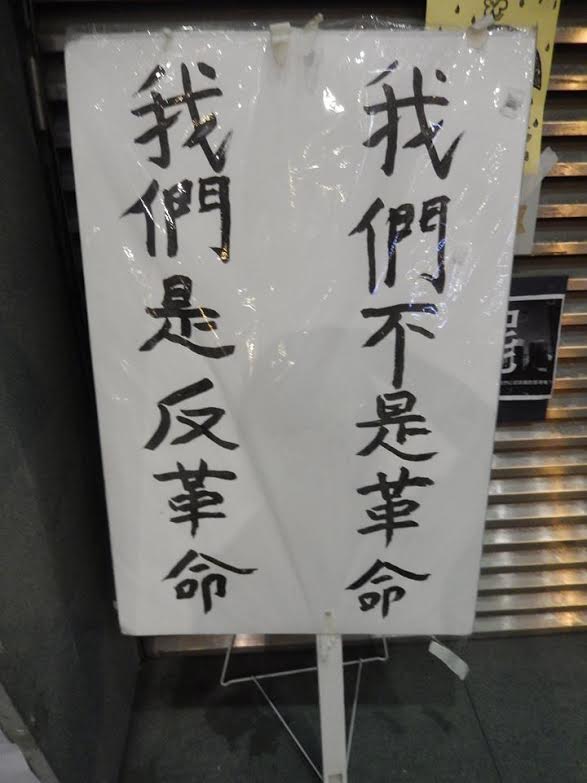 我們不是革命
我們是反革命